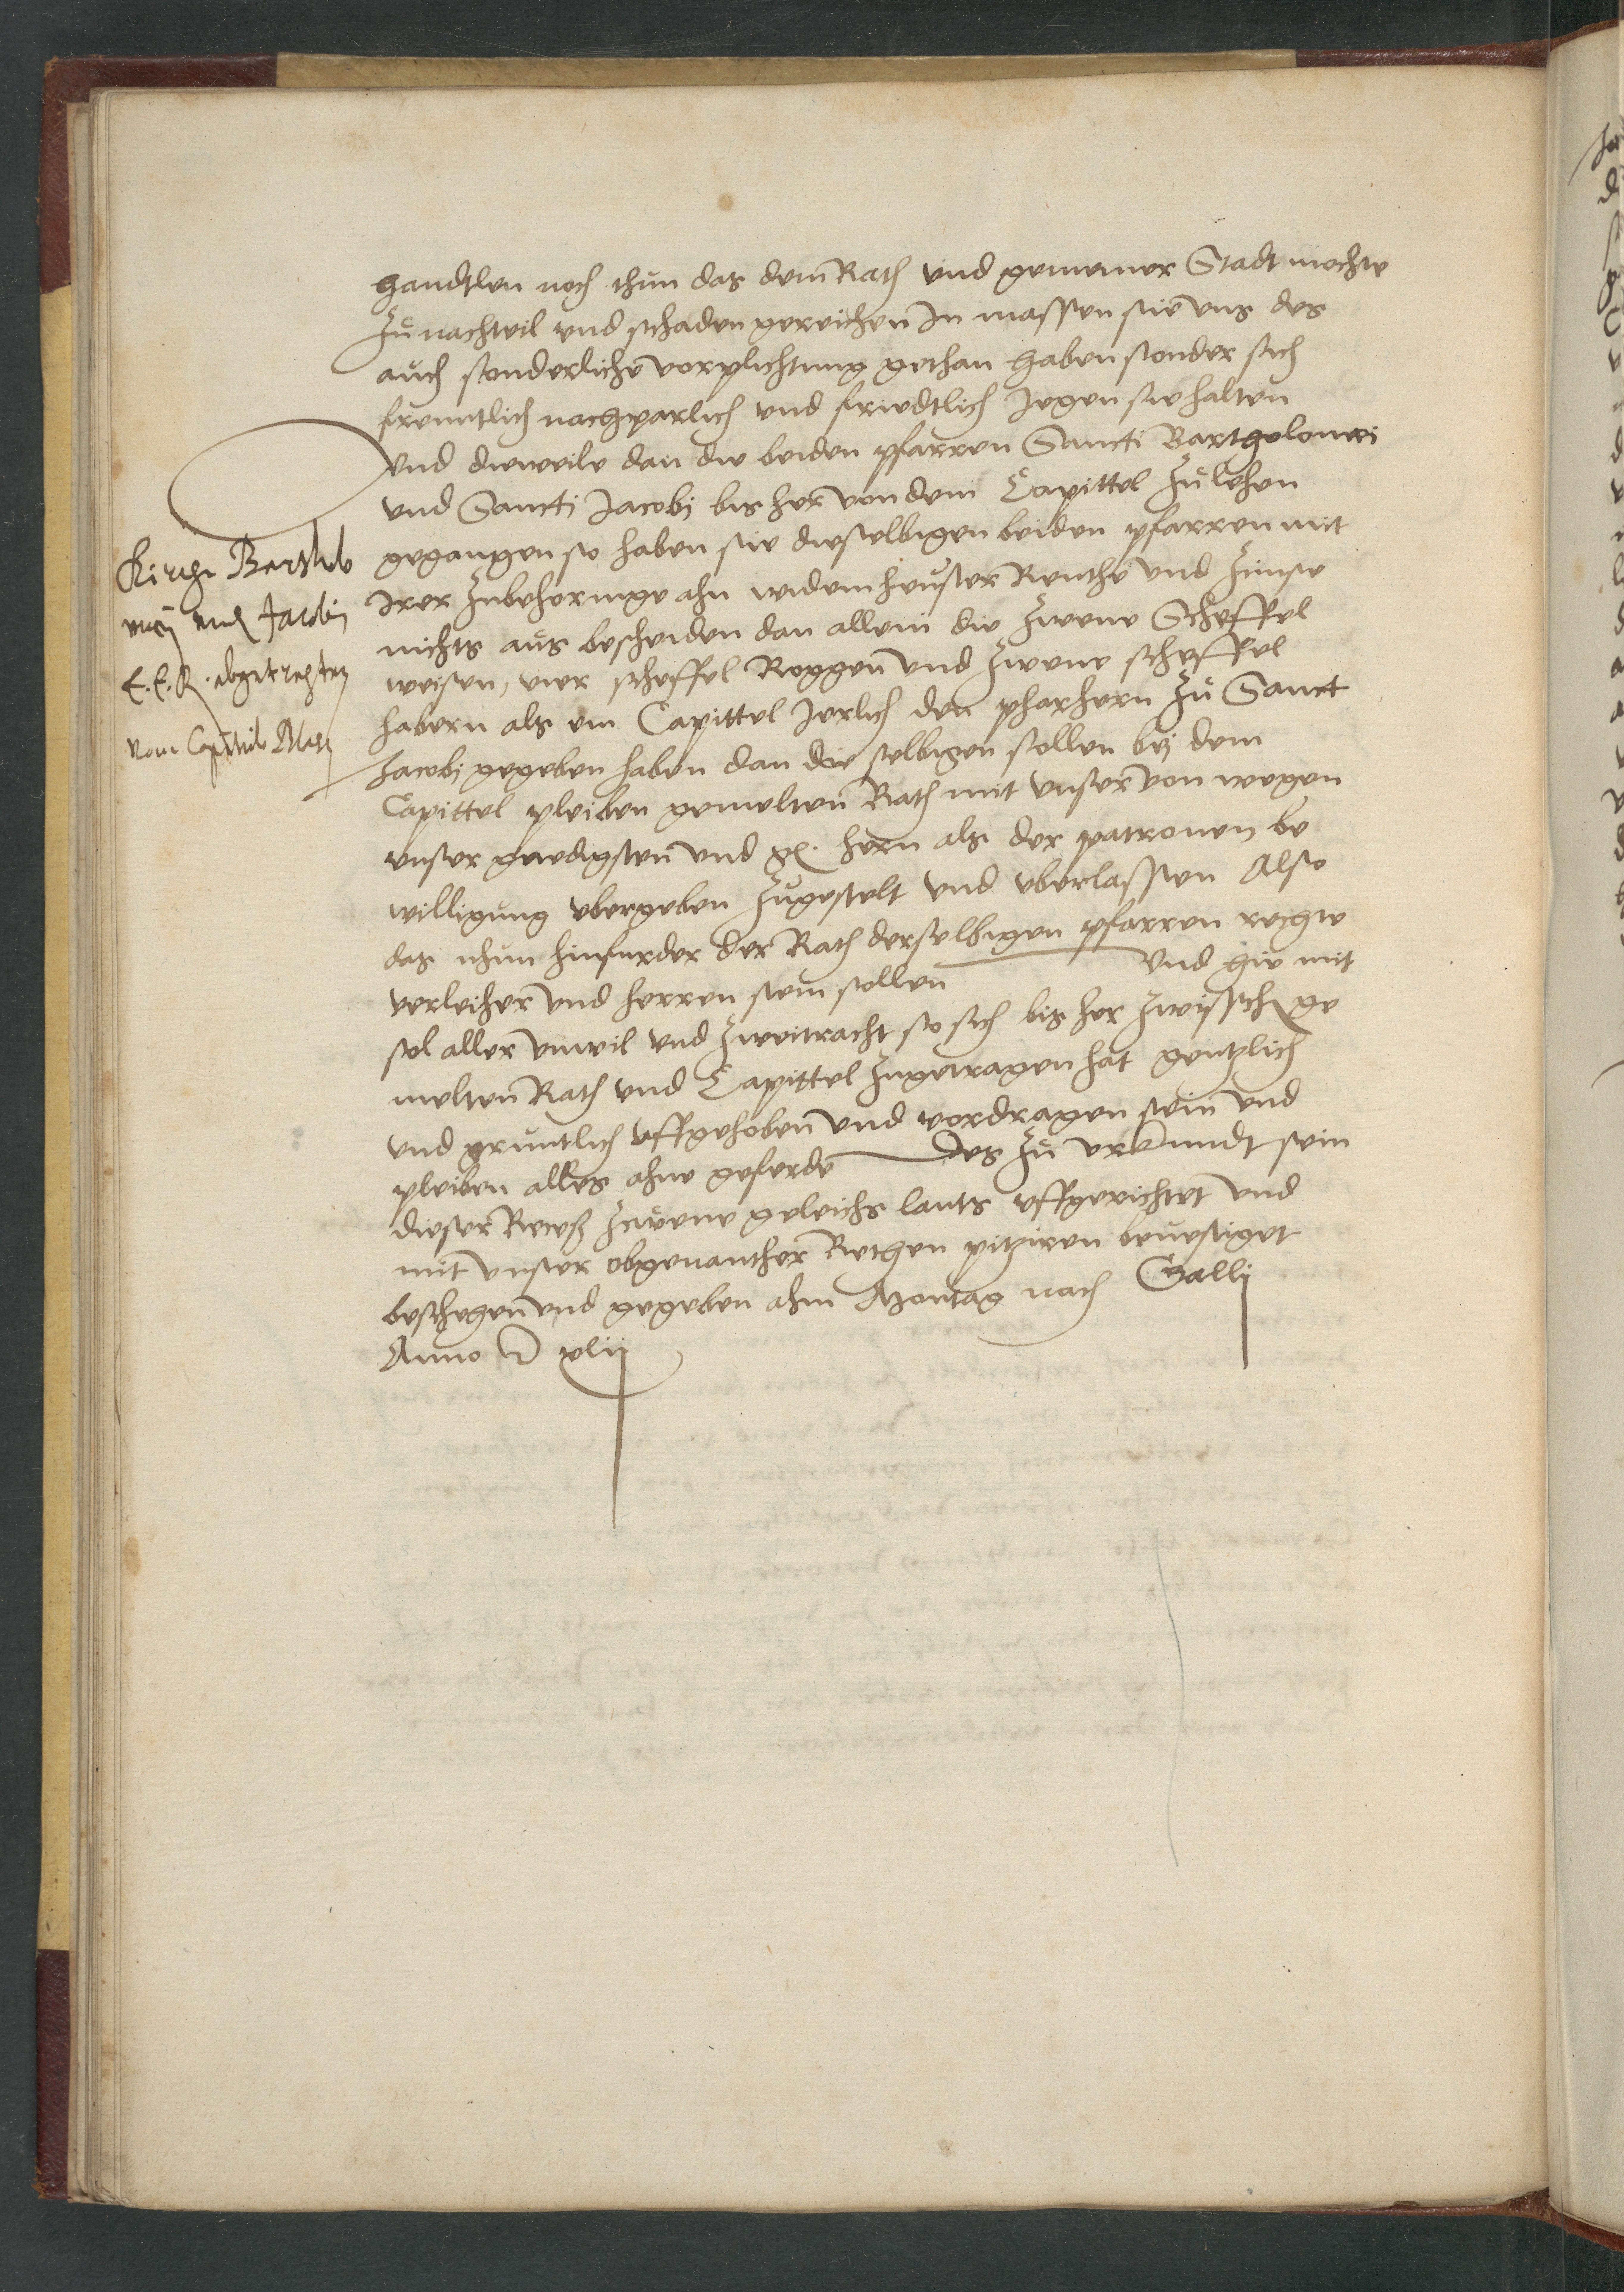 handtlen noch thun das dem Rath und gemeiner Stadt mochte
zu nachteil und schaden gereichen In massen sie uns des
auch sonderliche vorplichtung gethan haben sonder sich
freuntlich nachparlich und friedtlich Jegen sie halten
Und dieweile dan die beiden pfarren Sancti Bartholomei
und Sancti Jacobi bis her von dem Capittel zu lehen
gegangen so haben sie dieselbigen beiden pfarren mit
Irer zubehoringe ahn widem heuser Renthe und Zinse
nichts aus bescheiden dan allein die zwene Scheffel
weisen, vier scheffel Roggen und zwene scheffel
habern als ein Capittel Jerlich den pharhern zu Sanct
Jacobi gegeben haben dan die selbigen sollen bei dem
Capittel pleiben gemelten Rath mit unser von wegen
unser gnedigsten und g. hern als der patronen be
willigung ubergeben zugestelt und uberlassen Also
das nhun hinfurder der Rath derselbigen pfarren rechte
verleiher und herren sein sollen Und hie mit
sol aller unwil und zweitracht so sich bis her zwisschen ge
melten Rath und Capittel zugetragen hat gentzlich
und gruntlich uffgehoben und vordragen sein und
pleiben alles ahne geferde Des zu urkundt sein
dieser Recess zwene geleichs lauts uffgerichtet und
mit unser obgenanther Rethen pitziren bevestiget
beschegen und gegeben ahm Montag nach Galli
Anno D xlii
Kirche Bartholo
mei und Jacobi
E. E. R. abgetretten
vom Capitulo